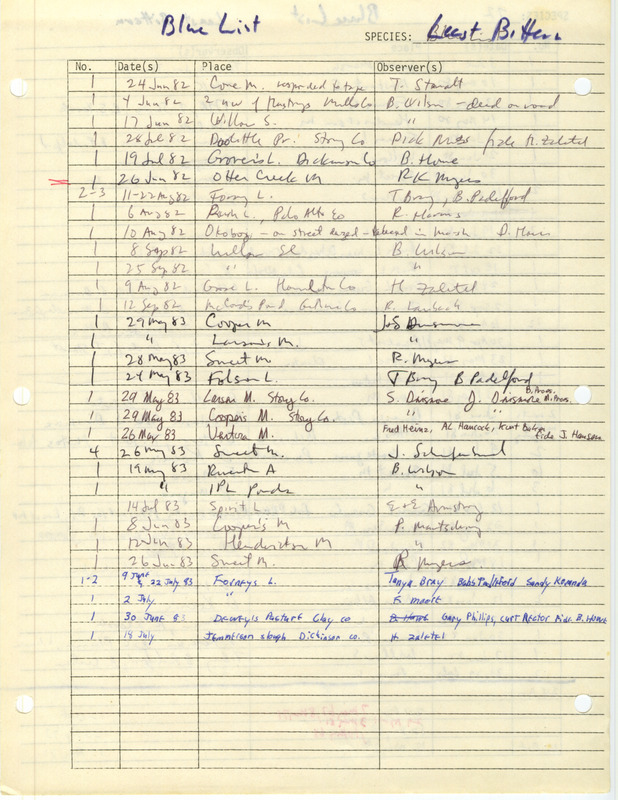 Blue List
SPECIES: Least Bittern
No. Date(s) Place Observer(s)
1 24 Jun 82 Cone M. responded to tape T.
1 4 Jun 82 2 NW of Hastings Mills Co B. Wilson - dead on road
1 17 Jun 82 Willow S. "
1 28 Jul 82 Doolittle Pr. Story Co Dick fide H. Zaletel
1 19 Jul 82 Grover's L. Dickinson Co B. Howe
1 26 Jun 82 Otter Creek M RK Myers
2-3 11-22 Aug 82 Forney L. T Bray, B. Padelford
1 6 Aug 82 Rush L., Palo Alto Co R. Harris
1 10 Aug 82 Okoboji - on street dazed - released in marsh D. Howe
1 8 Sep 82 Willow Sl B. Wilson
1 25 Sep 82 " "
1 9 Aug 82 Goose L. Hamilton Co H Zaletel
1 12 Sep 82 Pond R. Laubach
1 29 May 83 Cooper M J&S Dinsmore
1 " Larson's M. "
1 28 May 83 Sweet M. R. Myers
1 24 May 83 Folsom L. T Bray B Padelford
1 29 May 83 Larson M. Story Co. S. Dinsmore J. Dinsmore B. Proes. M. Proes.
1 29 May 83 Cooper's M. Story Co. " "
1 26 May 83 Ventura M. Fred Heinz, AL Hancock, Kurt fide J. Hansen
4 26 May 83 Sweet M. J. Schaufenbuel
1 19 May 83 Riverton A B. Wilson
1 " IPL Ponds "
14 Jul 83 Spirit L E&E Armstrong
1 8 Jun 83 Cooper's M P. Martsching
1 12 Jun 83 Hendrickson M "
1 26 Jun 83 Sweet M. R Myers
1-2 9 June & 22 July 83 Forneys L. Tanya Bray Babs Padelford Sandy Kovanda
1 2 July " F Moore
1 30 June 83 Dewey's Pasture Clay co B. Howe Gary Phillips, Curt Nector Fide. B. Howe
1 18 July Jemmerson slough Dickinson co. H Zaletel